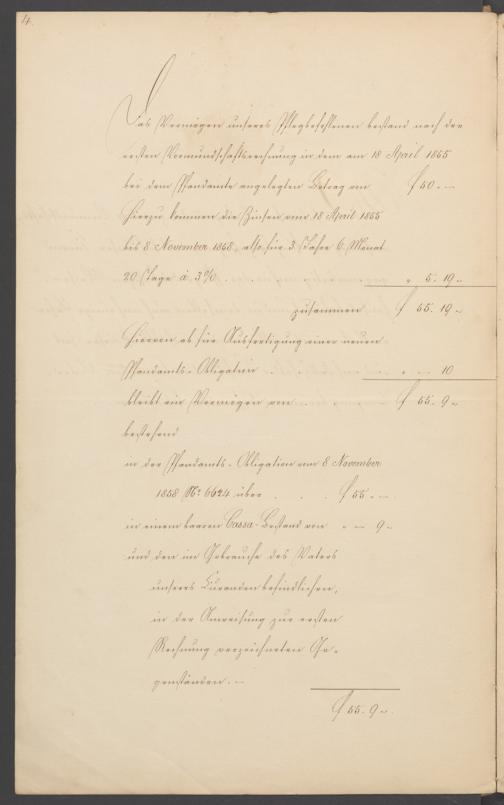 4.
Das Vermögen unseres Pflegbefohlenen bestand nach der
ersten Vormundschaftsrechnung in dem am 18 April 1855
bei dem Pfandamte angelegten Betrag von f 50.—
Hierzu kommen die Zinsen vom 18 April 1855
bis 8 November 1858, also für 3 Jahre 6 Monat
20 Tage à 3% . . . . „ 5. 19 „
zusammen f 55. 19 „
Hiervon ab für Ausfertigung einer neuen
Pfandamts-Obligation . . „ — 10
bleibt ein Vermögen von . . . f 55. 9 „
bestehend
in der Pfandamts-Obligation vom 8 November
1858 No 6624 über . . . f 55 „ —
in einem baaren Cassa-Bestand von „ — 9 „
und den im Gebrauche des Vaters
unseres Curanden befindlichen,
in der Anweisung zur ersten
Rechnung verzeichneten Ge-
genständen. —
f 55. 9 „